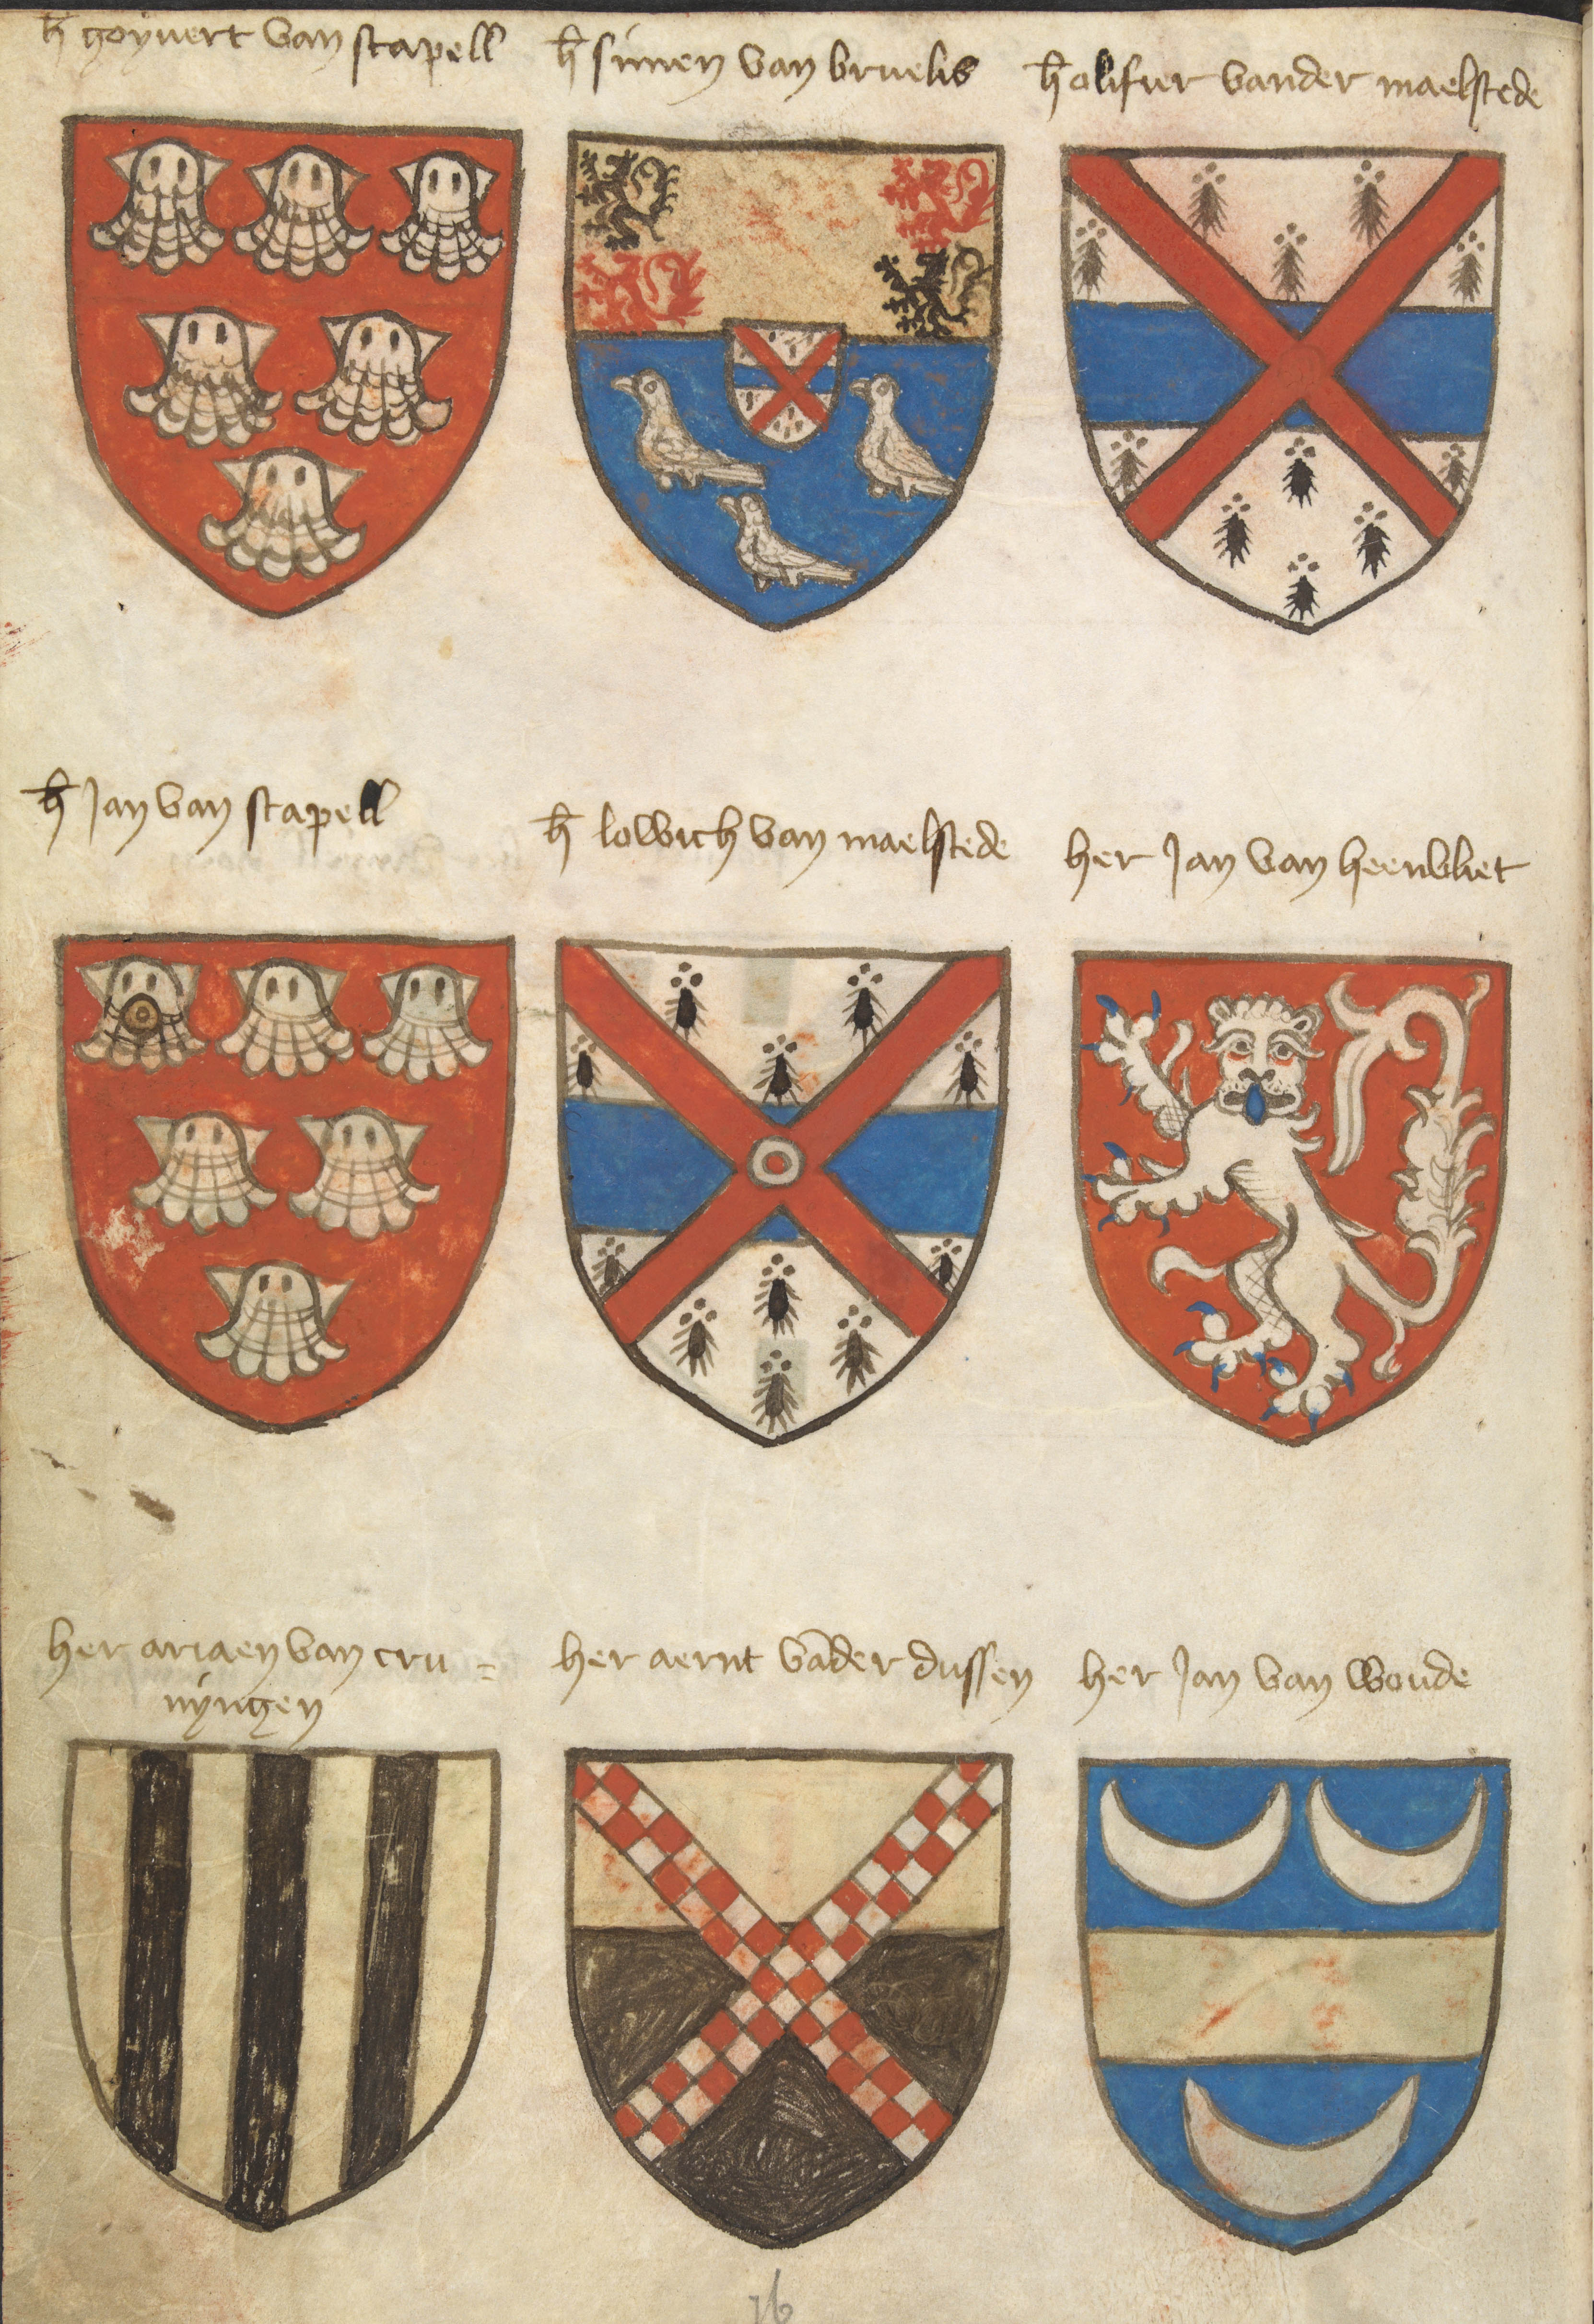 h̄ goyuert van stapell
h̄ simen van bruelis
h̄ olifier vander maelstede
h̄ Jan van stapell
h̄ lowich van maelstede
her Jan van heenvliet
her ariaen van cru =
nijngen
her aernt vāder dussen
her Jan van woude
76